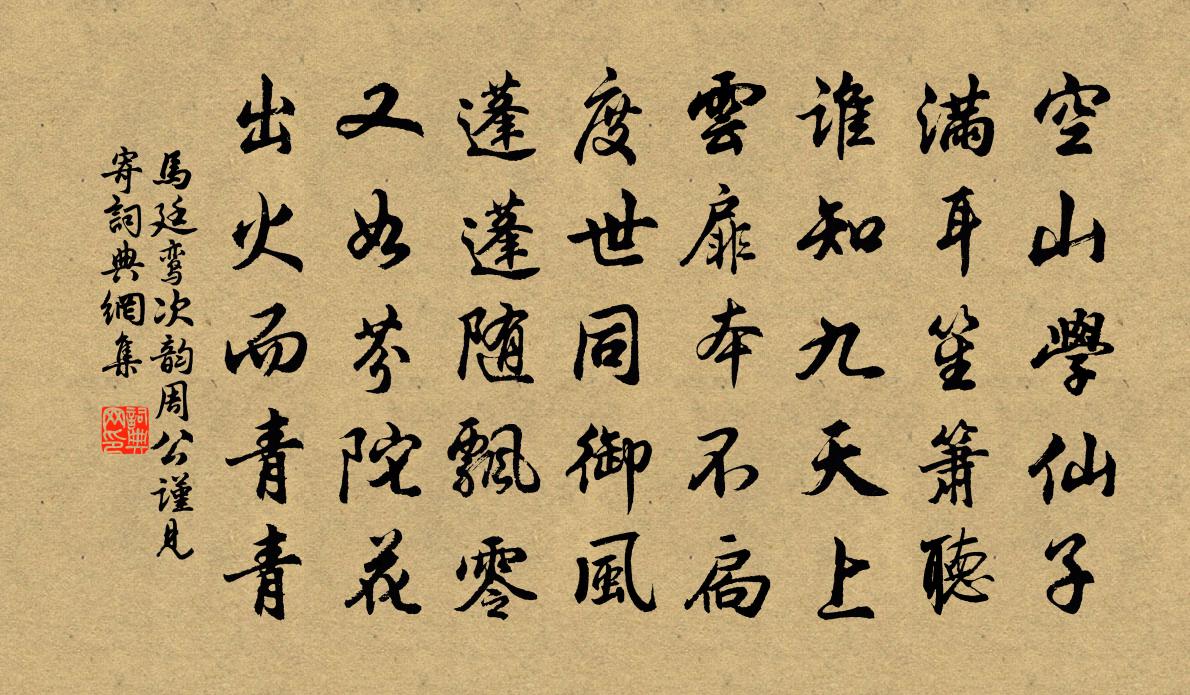 空山學仙子
滿耳笙簫聽
誰知九天上
雲扉本不扃
度世同御風
蓬蓬随飄零
又如芬陀花
出火而青青
馬廷鸾次韵周公謹見
寄詞典網集
詞典
网印